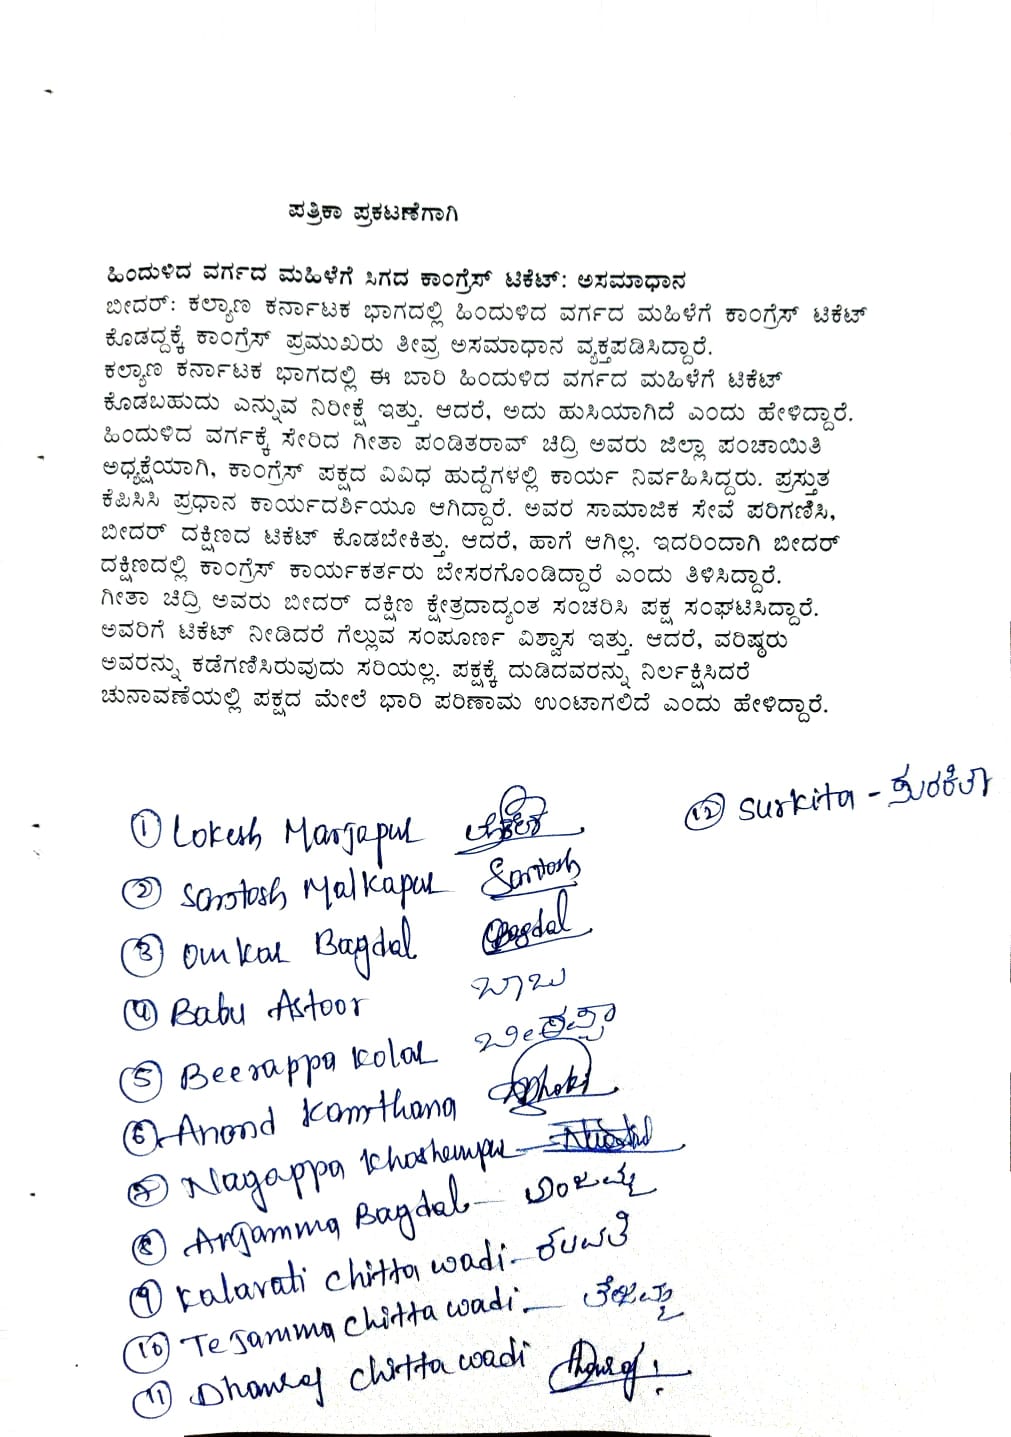 ಪತ್ರಿಕಾ ಪ್ರಕಟಣೆಗಾಗಿ
ಹಿಂದುಳಿದ ವರ್ಗದ ಮಹಿಳೆಗೆ ಸಿಗದ ಕಾಂಗ್ರೆಸ್ ಟಿಕೆಟ್: ಅಸಮಾಧಾನ
ಬೀದರ್: ಕಲ್ಯಾಣ ಕರ್ನಾಟಕ ಭಾಗದಲ್ಲಿ ಹಿಂದುಳಿದ ವರ್ಗದ ಮಹಿಳೆಗೆ ಕಾಂಗ್ರೆಸ್ ಟಿಕೆಟ್
ಕೊಡದ್ದಕ್ಕೆ ಕಾಂಗ್ರೆಸ್ ಪ್ರಮುಖರು ತೀವ್ರ ಅಸಮಾಧಾನ ವ್ಯಕ್ತಪಡಿಸಿದ್ದಾರೆ.
ಕಲ್ಯಾಣ ಕರ್ನಾಟಕ ಭಾಗದಲ್ಲಿ ಈ ಬಾರಿ ಹಿಂದುಳಿದ ವರ್ಗದ ಮಹಿಳೆಗೆ ಟಿಕೆಟ್
ಕೊಡಬಹುದು ಎನ್ನುವ ನಿರೀಕ್ಷೆ ಇತ್ತು. ಆದರೆ, ಅದು ಹುಸಿಯಾಗಿದೆ ಎಂದು ಹೇಳಿದ್ದಾರೆ.
ಹಿಂದುಳಿದ ವರ್ಗಕ್ಕೆ ಸೇರಿದ ಗೀತಾ ಪಂಡಿತರಾವ್ ಚಿದ್ರಿ ಅವರು ಜಿಲ್ಲಾ ಪಂಚಾಯಿತಿ
ಅಧ್ಯಕ್ಷೆಯಾಗಿ, ಕಾಂಗ್ರೆಸ್ ಪಕ್ಷದ ವಿವಿಧ ಹುದ್ದೆಗಳಲ್ಲಿ ಕಾರ್ಯ ನಿರ್ವಹಿಸಿದ್ದರು. ಪ್ರಸ್ತುತ
ಕೆಪಿಸಿಸಿ ಪ್ರಧಾನ ಕಾರ್ಯದರ್ಶಿಯೂ ಆಗಿದ್ದಾರೆ. ಅವರ ಸಾಮಾಜಿಕ ಸೇವೆ ಪರಿಗಣಿಸಿ,
ಬೀದರ್ ದಕ್ಷಿಣದ ಟಿಕೆಟ್ ಕೊಡಬೇಕಿತ್ತು. ಆದರೆ, ಹಾಗೆ ಆಗಿಲ್ಲ. ಇದರಿಂದಾಗಿ ಬೀದರ್
ದಕ್ಷಿಣದಲ್ಲಿ ಕಾಂಗ್ರೆಸ್ ಕಾರ್ಯಕರ್ತರು ಬೇಸರಗೊಂಡಿದ್ದಾರೆ ಎಂದು ತಿಳಿಸಿದ್ದಾರೆ.
ಗೀತಾ ಚಿದ್ರಿ ಅವರು ಬೀದರ್ ದಕ್ಷಿಣ ಕ್ಷೇತ್ರದಾದ್ಯಂತ ಸಂಚರಿಸಿ ಪಕ್ಷ ಸಂಘಟಿಸಿದ್ದಾರೆ.
ಅವರಿಗೆ ಟಿಕೆಟ್ ನೀಡಿದರೆ ಗೆಲ್ಲುವ ಸಂಪೂರ್ಣ ವಿಶ್ವಾಸ ಇತ್ತು. ಆದರೆ, ವರಿಷ್ಠರು
ಅವರನ್ನು ಕಡೆಗಣಿಸಿರುವುದು ಸರಿಯಲ್ಲ. ಪಕ್ಷಕ್ಕೆ ದುಡಿದವರನ್ನು ನಿರ್ಲಕ್ಷಿಸಿದರೆ
ಚುನಾವಣೆಯಲ್ಲಿ ಪಕ್ಷದ ಮೇಲೆ ಭಾರಿ ಪರಿಣಾಮ ಉಂಟಾಗಲಿದೆ ಎಂದು ಹೇಳಿದ್ದಾರೆ.
1 Lokesh Marjapur
2 Santosh Malkapur Santosh
3 Omkar Bagdal Bagdal
4 Babu Astoor ಬಾಬು
5 Beerappa Kolar ಬೀರಪ್ಪಾ
6 Anand Kamthana
Nagappa Khashempur
8 Anjamma Bagdal - ಅಂಜಮ್ಮ
9 Kalavati Chitta wadi - ಕಲಾವತಿ
10 Tejamma Chitta wadi - ತೇಜಮ್ಮ
11 Dhanraj Chitta wadi
12 Surkita - ಸುರಕಿತಾ